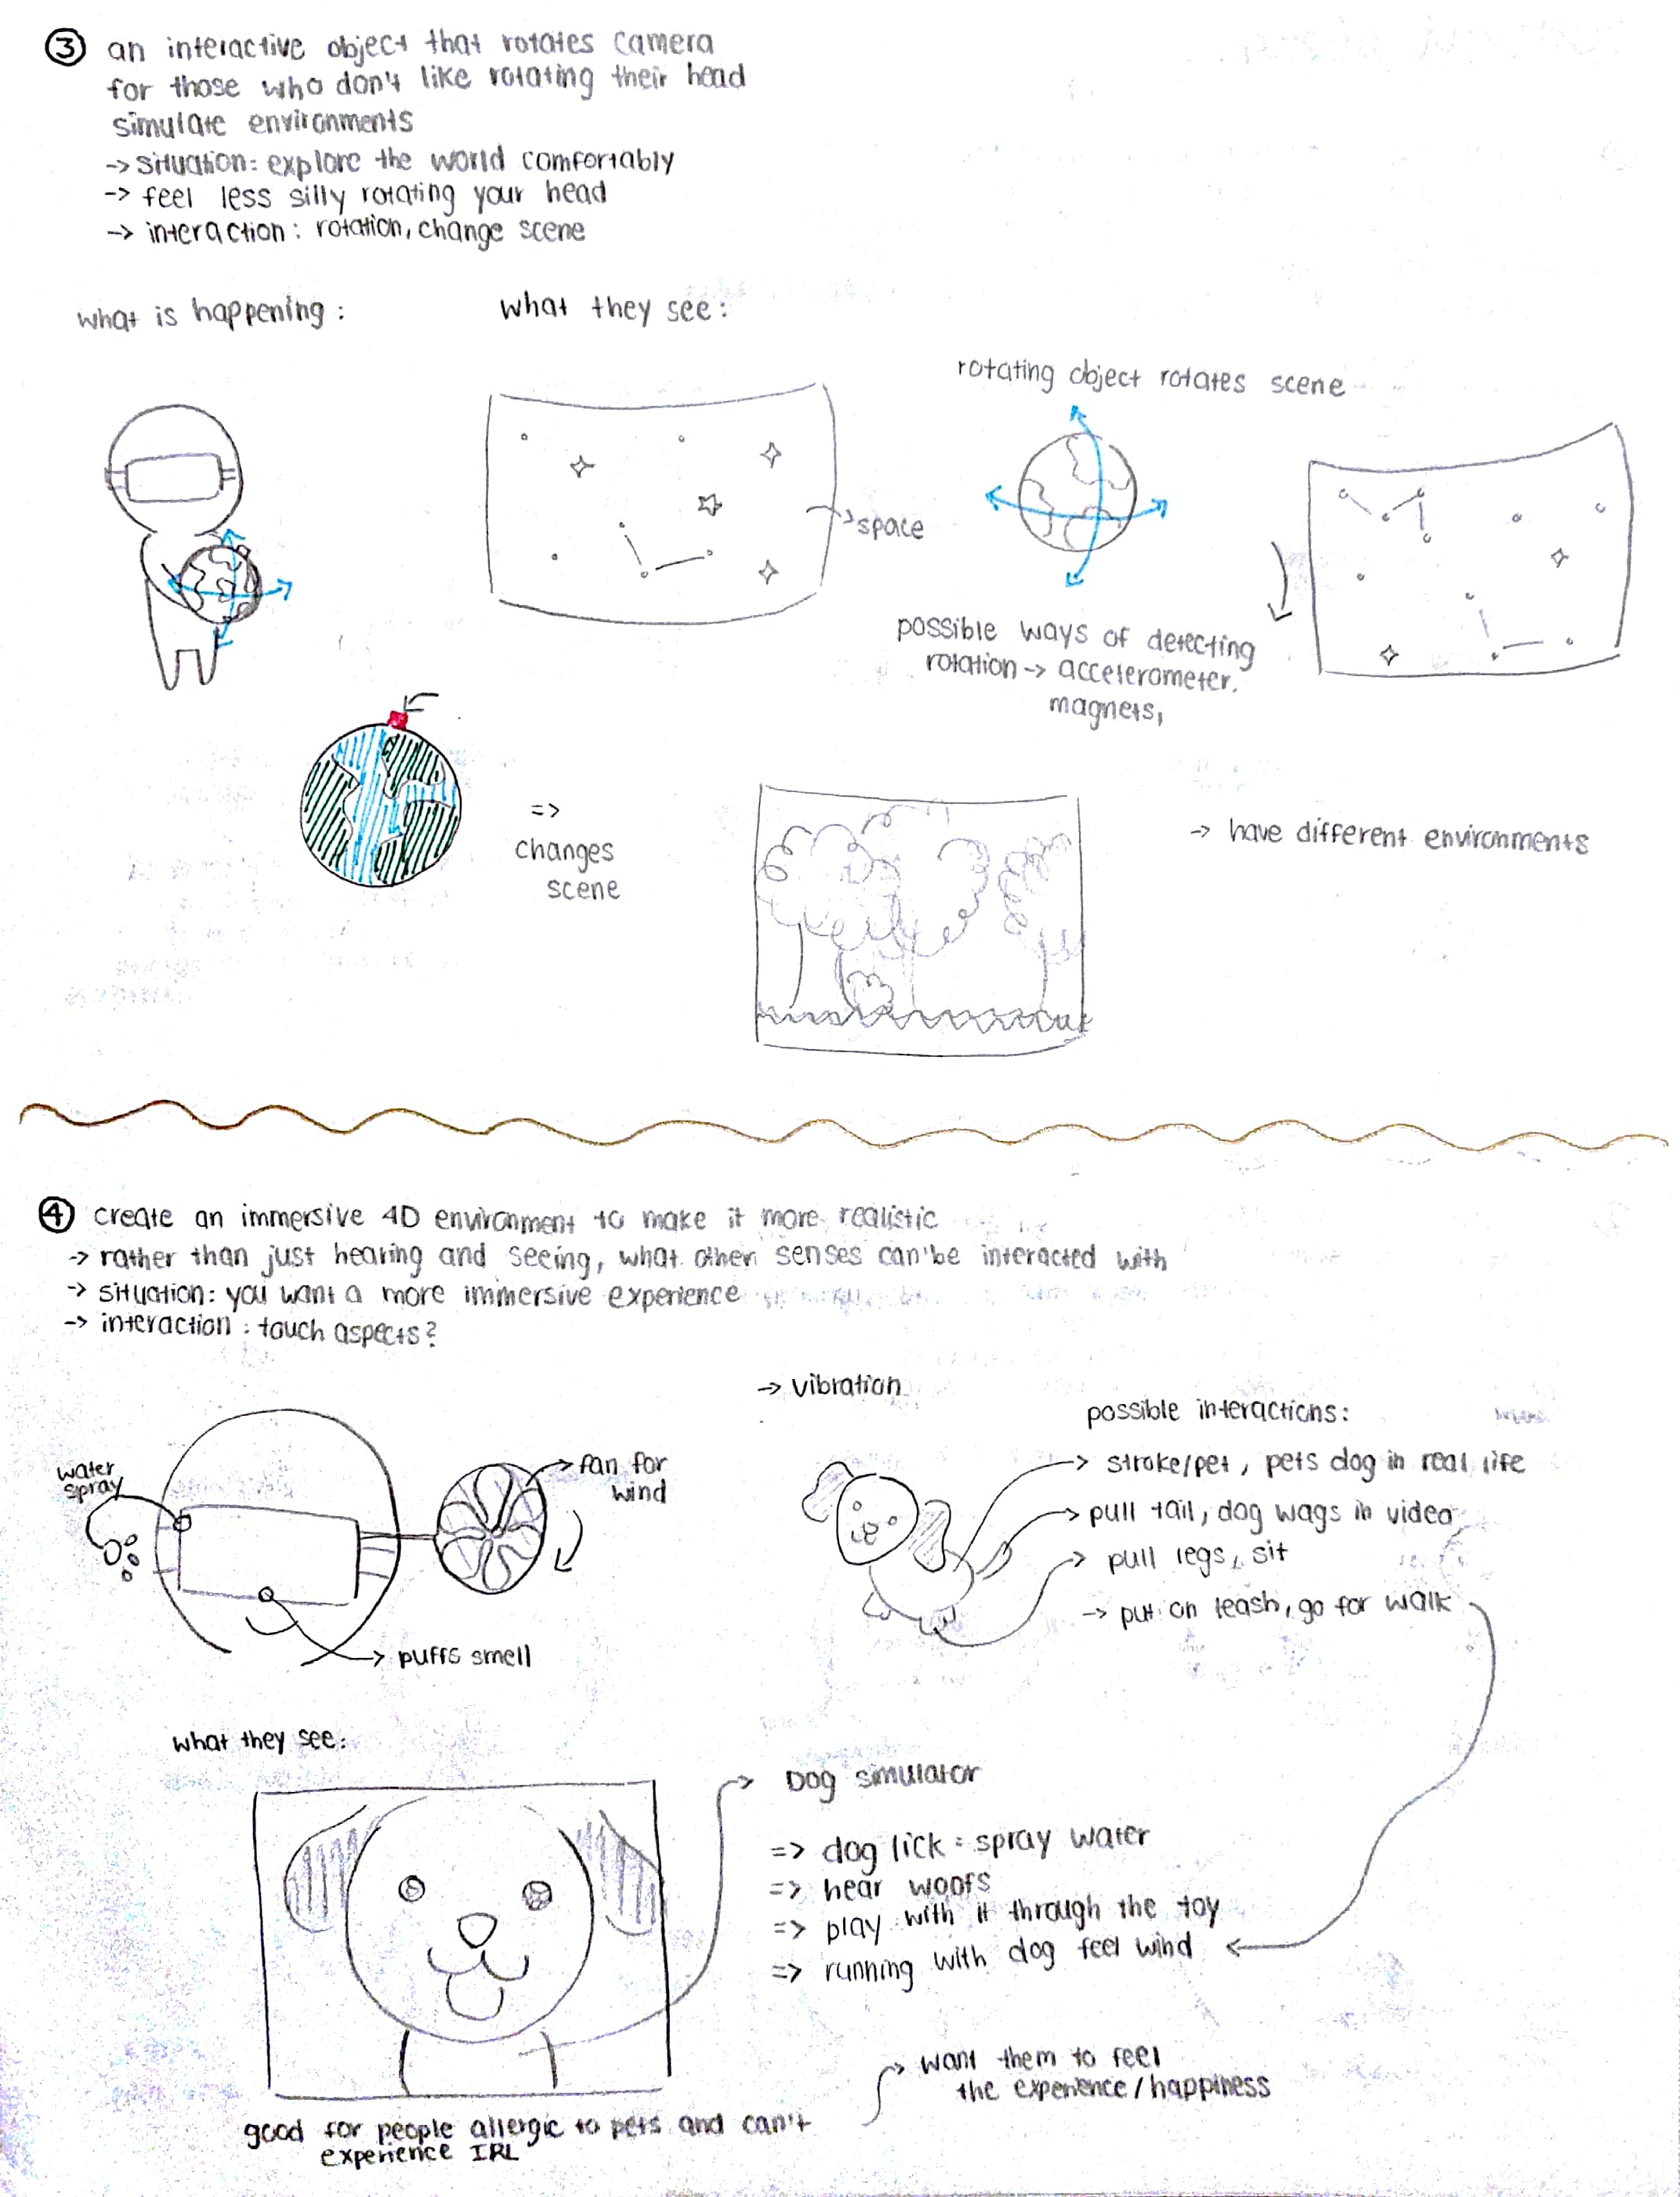 ③ an interactive object that rotates camera
for those who don't like rotating their head
simulate environments
-> situation: explore the world comfortably
-> feel less silly rotating your head
-> interaction: rotation, change scene
what is happening:
what they see:
rotating object rotates scene
space
possible ways of detecting
rotation -> accelerometer,
magnets,
=>
changes
scene
-> have different environments
④ create an immersive 4D environment to make it more realistic
-> rather than just hearing and seeing, what other senses can be interacted with
-> situation: you want a more immersive experience
-> interaction: touch aspects?
-> vibration
possible interactions:
water
spray
-> fan for
wind
-> puffs smell
-> stroke/pet, pets dog in real life
-> pull tail, dog wags in video
-> pull legs, sit
-> put on leash, go for walk
what they see:
-> Dog simulator
=> dog lick = spray water
=> hear woofs
=> play with it through the toy
=> running with dog feel wind
-> want them to feel
the experience/happiness
good for people allergic to pets and can't
experience IRL